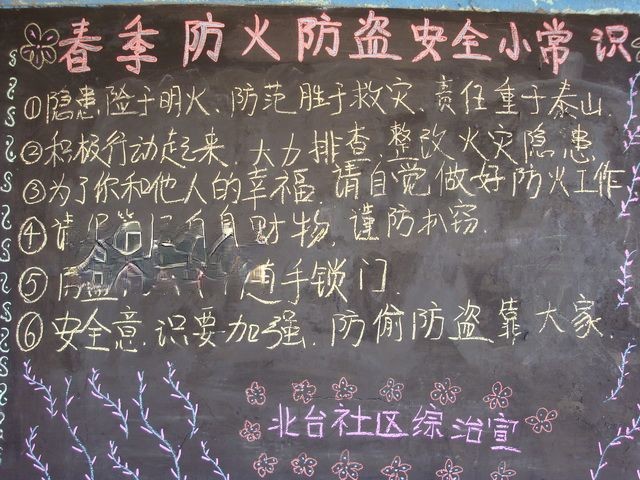 春季防火防盗安全小常识
①隐患险于明火、防范胜于救灾、责任重于泰山.
②积极行动起来、大力排查、整改火灾隐患
③为了你和他人的幸福.请自觉做好防火工作
④请 自身财物,谨防扒窃.
⑤防盗 随手锁门.
⑥安全意识要加强.防偷防盗靠大家.
北台社区综治宣